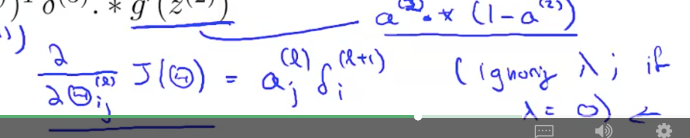 δ⁽³⁾ .* g′(z⁽²⁾)    a⁽²⁾ .* (1 − a⁽²⁾)
∂/∂Θᵢⱼ⁽ˡ⁾ J(Θ) = aⱼ⁽ˡ⁾ δᵢ⁽ˡ⁺¹⁾    (ignoring λ; if
λ = 0) ←